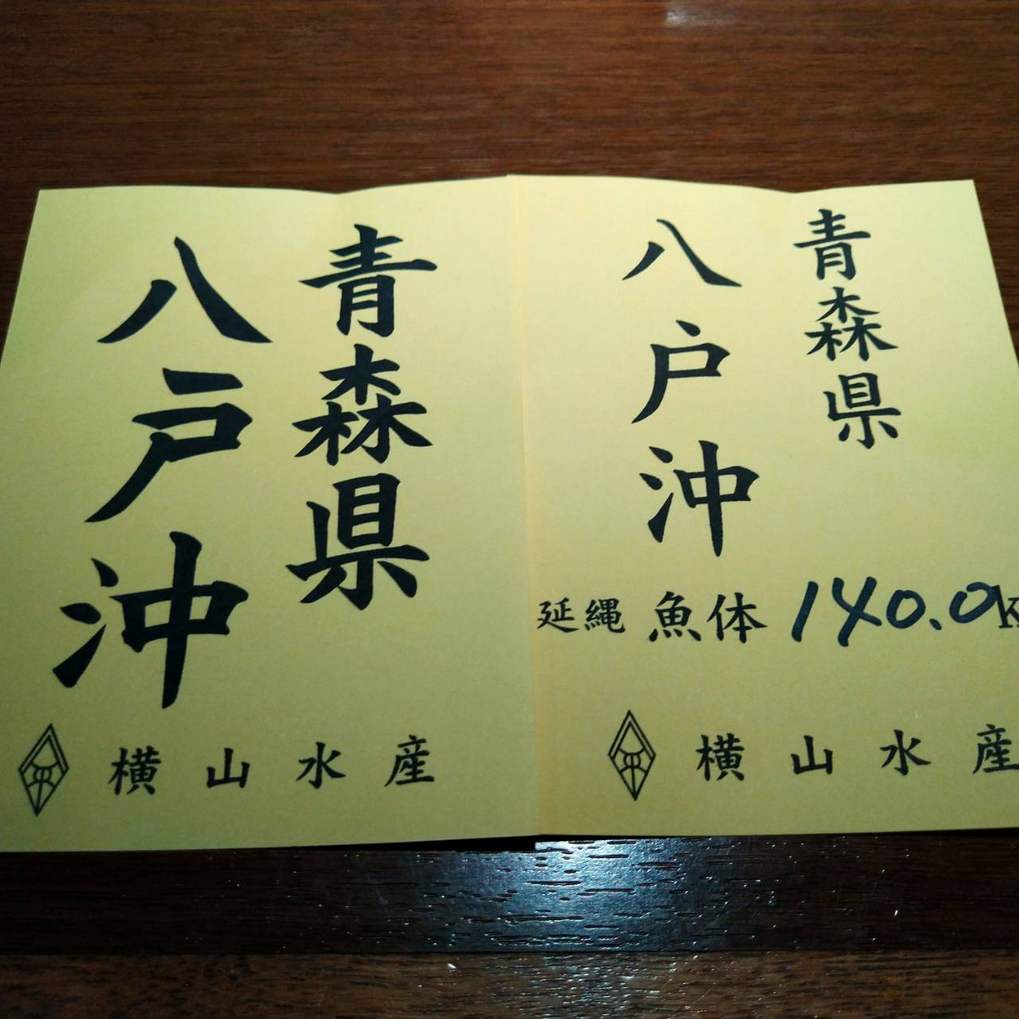 青森県
八戸沖
横山水産
青森県
八戸沖
延縄 魚体 140.0k
横山水産